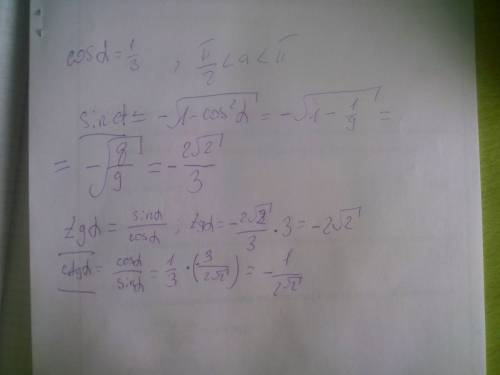 cosα = 1/3 ; π/2 < α < π
sin α = -√(1-cos²α) = -√(1 - 1/9) =
= -√(8/9) = - 2√2/3
tgα = sinα/cosα ; tgα = - 2√2/3 · 3 = -2√2
ctgα = cosα/sinα = 1/3 · (3/2√2) = - 1/2√2